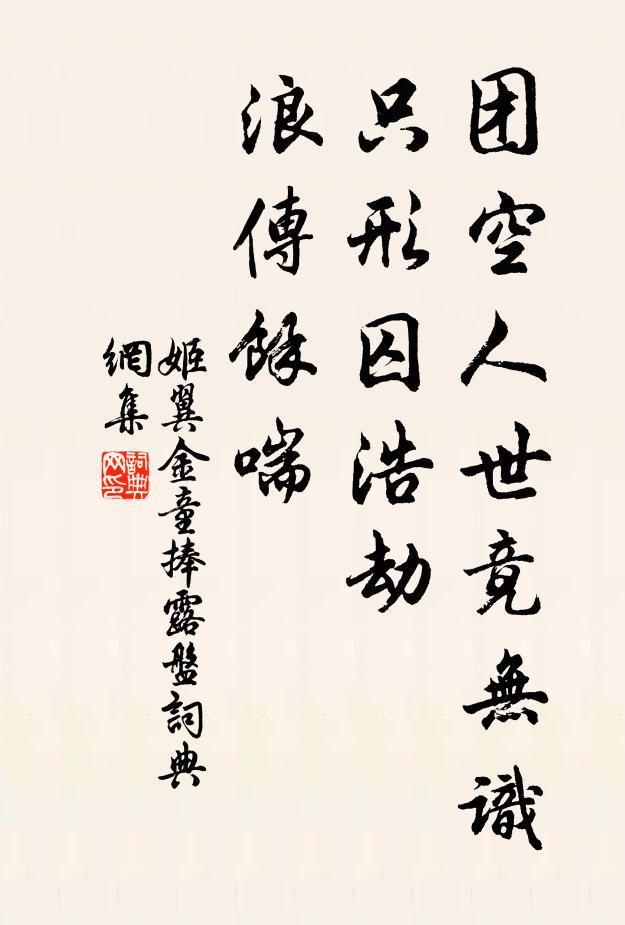 团空人世竟無識
只形囚浩劫
浪傳餘喘
姬翼金童捧露盤詞典
網集
詞典
网印